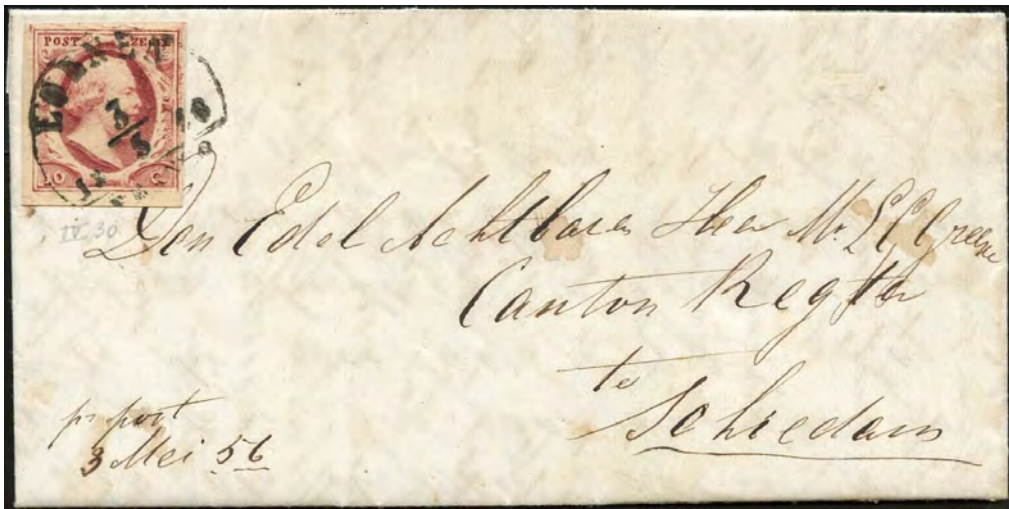 POST ZEGEL
3/5
10 C
IV 30
Den Edel Achtbaren Heer Mr.
Canton Regter
te
Schiedam
pr post
3 Mei 56